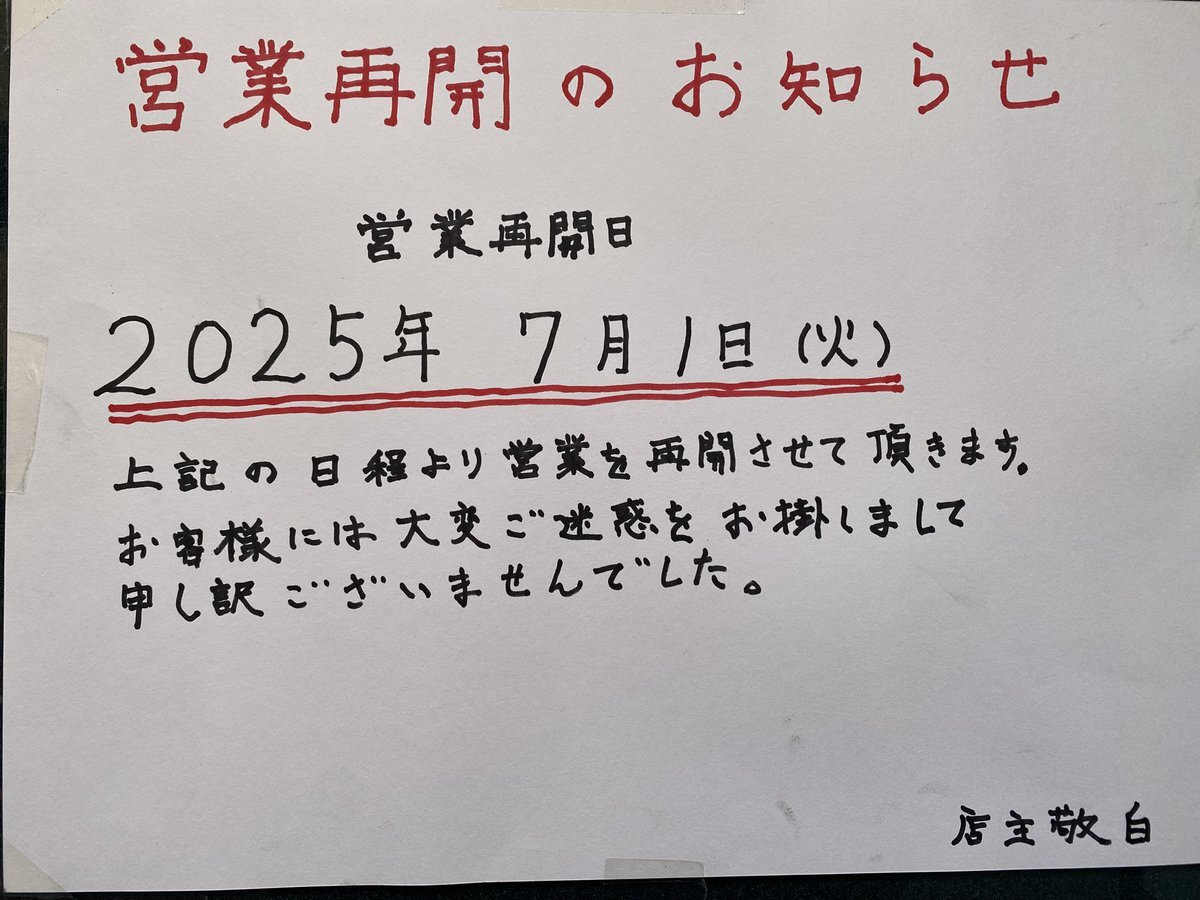 営業再開のお知らせ
営業再開日
2025年 7月1日(火)
上記の日程より営業を再開させて頂きます。
お客様には大変ご迷惑をお掛しまして
申し訳ございませんでした。
店主敬白